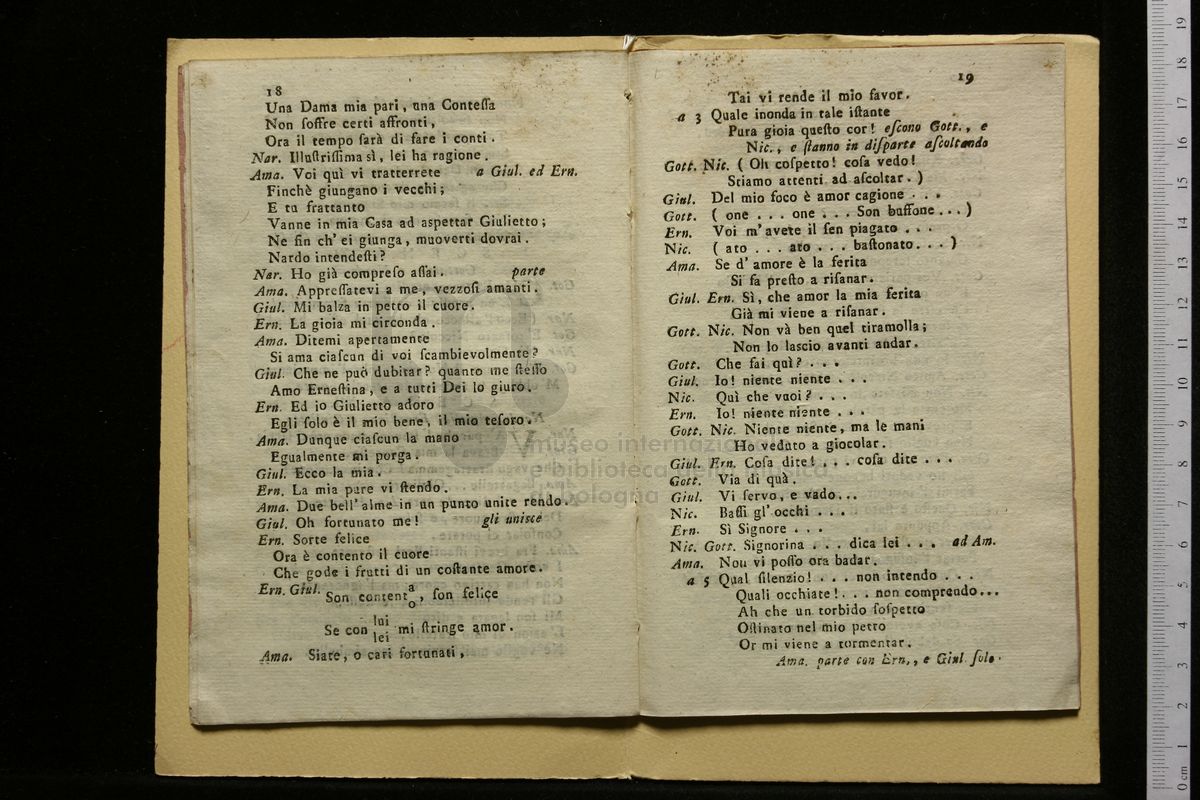 18
Una Dama mia pari, una Conteſſa
Non ſoffre certi affronti,
Ora il tempo ſarà di fare i conti.
Nar. Illuſtriſſima sì, lei ha ragione.
Ama. Voi quì vi tratterrete a Giul. ed Ern.
Finchè giungano i vecchi;
E tu frattanto
Vanne in mia Casa ad aspettar Giulietto;
Ne fin ch' ei giunga, muoverti dovrai.
Nardo intendeſti?
Nar. Ho già compreſo aſſai. parte
Ama. Appreſſatevi a me, vezzoſi amanti.
Giul. Mi balza in petto il cuore.
Ern. La gioia mi circonda.
Ama. Ditemi apertamente
Si ama ciaſcun di voi ſcambievolmente?
Giul. Che ne può dubitar? quanto me ſteſſo
Amo Erneſtina, e a tutti Dei lo giuro.
Ern. Ed io Giulietto adoro
Egli ſolo è il mio bene, il mio teſoro.
Ama. Dunque ciaſcun la mano
Egualmente mi porga.
Giul. Ecco la mia.
Ern. La mia pure vi ſtendo.
Ama. Due bell' alme in un punto unite rendo.
Giul. Oh fortunato me! gli unisce
Ern. Sorte felice
Ora è contento il cuore
Che gode i frutti di un coſtante amore.
Ern. Giul. Son content a/o, ſon felice
Se con lui/lei mi ſtringe amor.
Ama. Siate, o cari fortunati,
19
Tai vi rende il mio favor.
a 3 Quale inonda in tale iſtante
Pura gioia queſto cor! eſcono Gott., e
Nic., e ſtanno in diſparte aſcoltando
Gott. Nic. ( Oh coſpetto! coſa vedo!
Stiamo attenti ad aſcoltar. )
Giul. Del mio foco è amor cagione . . .
Gott. ( one . . . one . . . Son buffone . . . )
Ern. Voi m' avete il ſen piagato . . .
Nic. ( ato . . . ato . . . baſtonato . . . )
Ama. Se d' amore è la ferita
Si fa preſto a riſanar.
Giul. Ern. Sì, che amor la mia ferita
Già mi viene a riſanar.
Gott. Nic. Non và ben quel tiramolla;
Non lo laſcio avanti andar.
Gott. Che fai quì? . . .
Giul. Io! niente niente . . .
Nic. Quì che vuoi? . . .
Ern. Io! niente niente . . .
Gott. Nic. Niente niente, ma le mani
Ho veduto a giocolar.
Giul. Ern. Coſa dite! . . . coſa dite . . .
Gott. Via di quà.
Giul. Vi ſervo, e vado...
Nic. Baſſi gl' occhi . . .
Ern. Sì Signore . . .
Nic. Gott. Signorina . . . dica lei . . . ad Am.
Ama. Non vi poſſo ora badar.
a 5 Qual ſilenzio! . . . non intendo . . .
Quali occhiate! . . . non comprendo...
Ah che un torbido ſoſpetto
Oſtinato nel mio petto
Or mi viene a tormentar.
Ama. parte con Ern., e Giul ſolo.
museo internazionale
e biblioteca della musica
bologna
0 cm 1 2 3 4 5 6 7 8 9 10 11 12 13 14 15 16 17 18 19